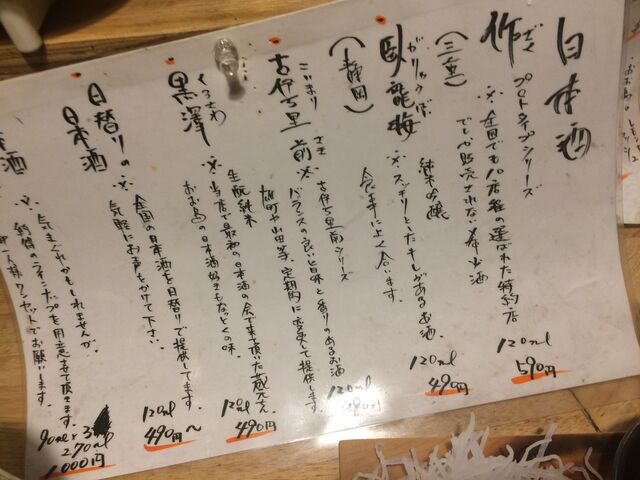 日本酒
ざく
作 プロトタイプシリーズ
※全国でも10店程の選ばれた特約店
でしか販売されない希少酒
120ml
590円
(三重)
がりゅうばい
臥龍梅 純米吟醸
※スッキリとしたキレがあるお酒。
食事に良く合います。
120ml
490円
(静岡)
こいまり さき
古伊万里 前 古伊万里前シリーズ
※バランスの良い旨味と香りのあるお酒
雄町や山田等、定期的に変更して提供します。
120ml
490円
くろさわ
黒澤 生酛純米
※当店で最初の日本酒の会で来て頂いた蔵元さん
おお島の日本酒好きもなっとくの味。
120ml
490円
日替りの
日本酒
※全国の日本酒を日替りで提供してます。
気軽にお声をかけて下さい。
120ml
490円〜
酒
※気まぐれかもしれませんが、
釣鐘のラインナップを用意させて頂きます。
一人様ワンセットでお願いします。
90ml×3
270ml
1000円